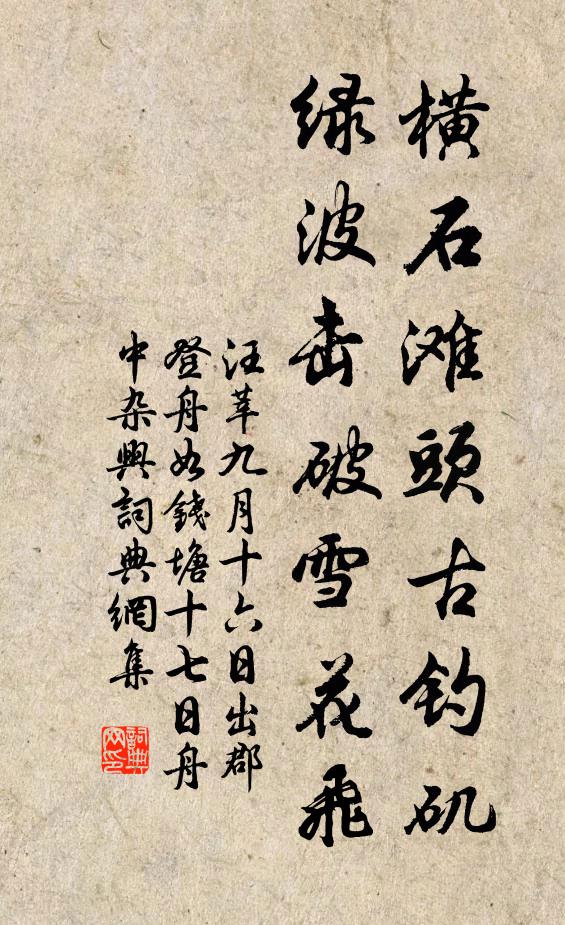 横石滩頭古钓矶
绿波击破雪花飛
汪莘九月十六日出郡
登舟如錢塘十七日舟
中杂興詞典網集
詞典
网印